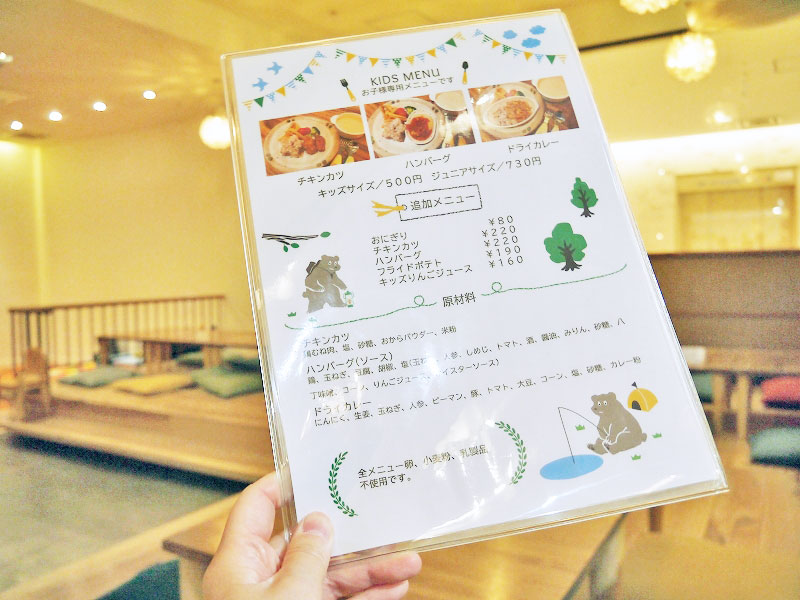 KIDS MENU
お子様専用メニューです
チキンカツ
ハンバーグ
ドライカレー
キッズサイズ/500円 ジュニアサイズ/730円
追加メニュー
おにぎり ¥80
チキンカツ ¥220
ハンバーグ ¥220
フライドポテト ¥190
キッズりんごジュース ¥160
原材料
チキンカツ
鶏むね肉、塩、砂糖、おからパウダー、米粉
ハンバーグ(ソース)
鶏、玉ねぎ、豆腐、胡椒、塩(玉ねぎ、人参、しめじ、トマト、酒、醤油、みりん、砂糖、八
丁味噌、コーン、りんごジュース
ドライカレー
にんにく、生姜、玉ねぎ、人参、ピーマン、豚、トマト、大豆、コーン、塩、砂糖、カレー粉
全メニュー卵、小麦粉、乳製品
不使用です。